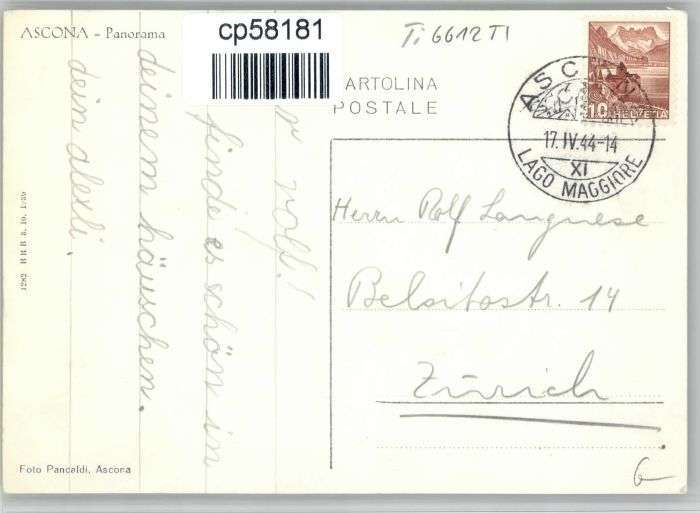 ASCONA – Panorama
cp58181
Ti 6612 TI
CARTOLINA
POSTALE
ASCONA
17.IV.44-14
XI
LAGO MAGGIORE
10
HELVETIA
rolf!
finde es schön in
deinem häuschen.
dein alexli.
Herrn Rolf Langnese
Belsitostr. 14
Zürich
1282 BRB 3. 10. 1939
Foto Pancaldi, Ascona
6-